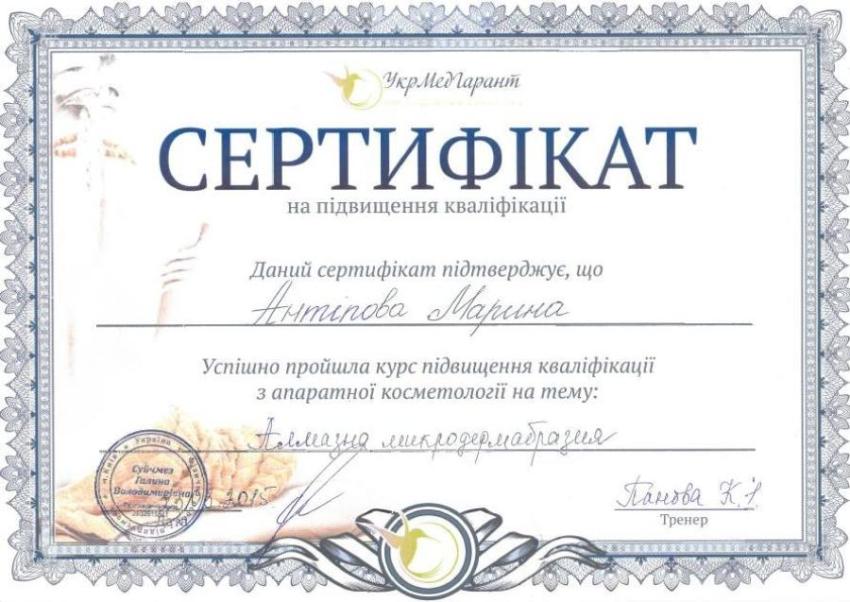 УкрМедГарант
СЕРТИФІКАТ
на підвищення кваліфікації
Даний сертифікат підтверджує, що
Антіпова Марина
Успішно пройшла курс підвищення кваліфікації
з апаратної косметології на тему:
Алмазна микродермабразия
Україна
м.Київ
Суйчмез
Галина
Володимирівна
2015
Панова К.
Тренер